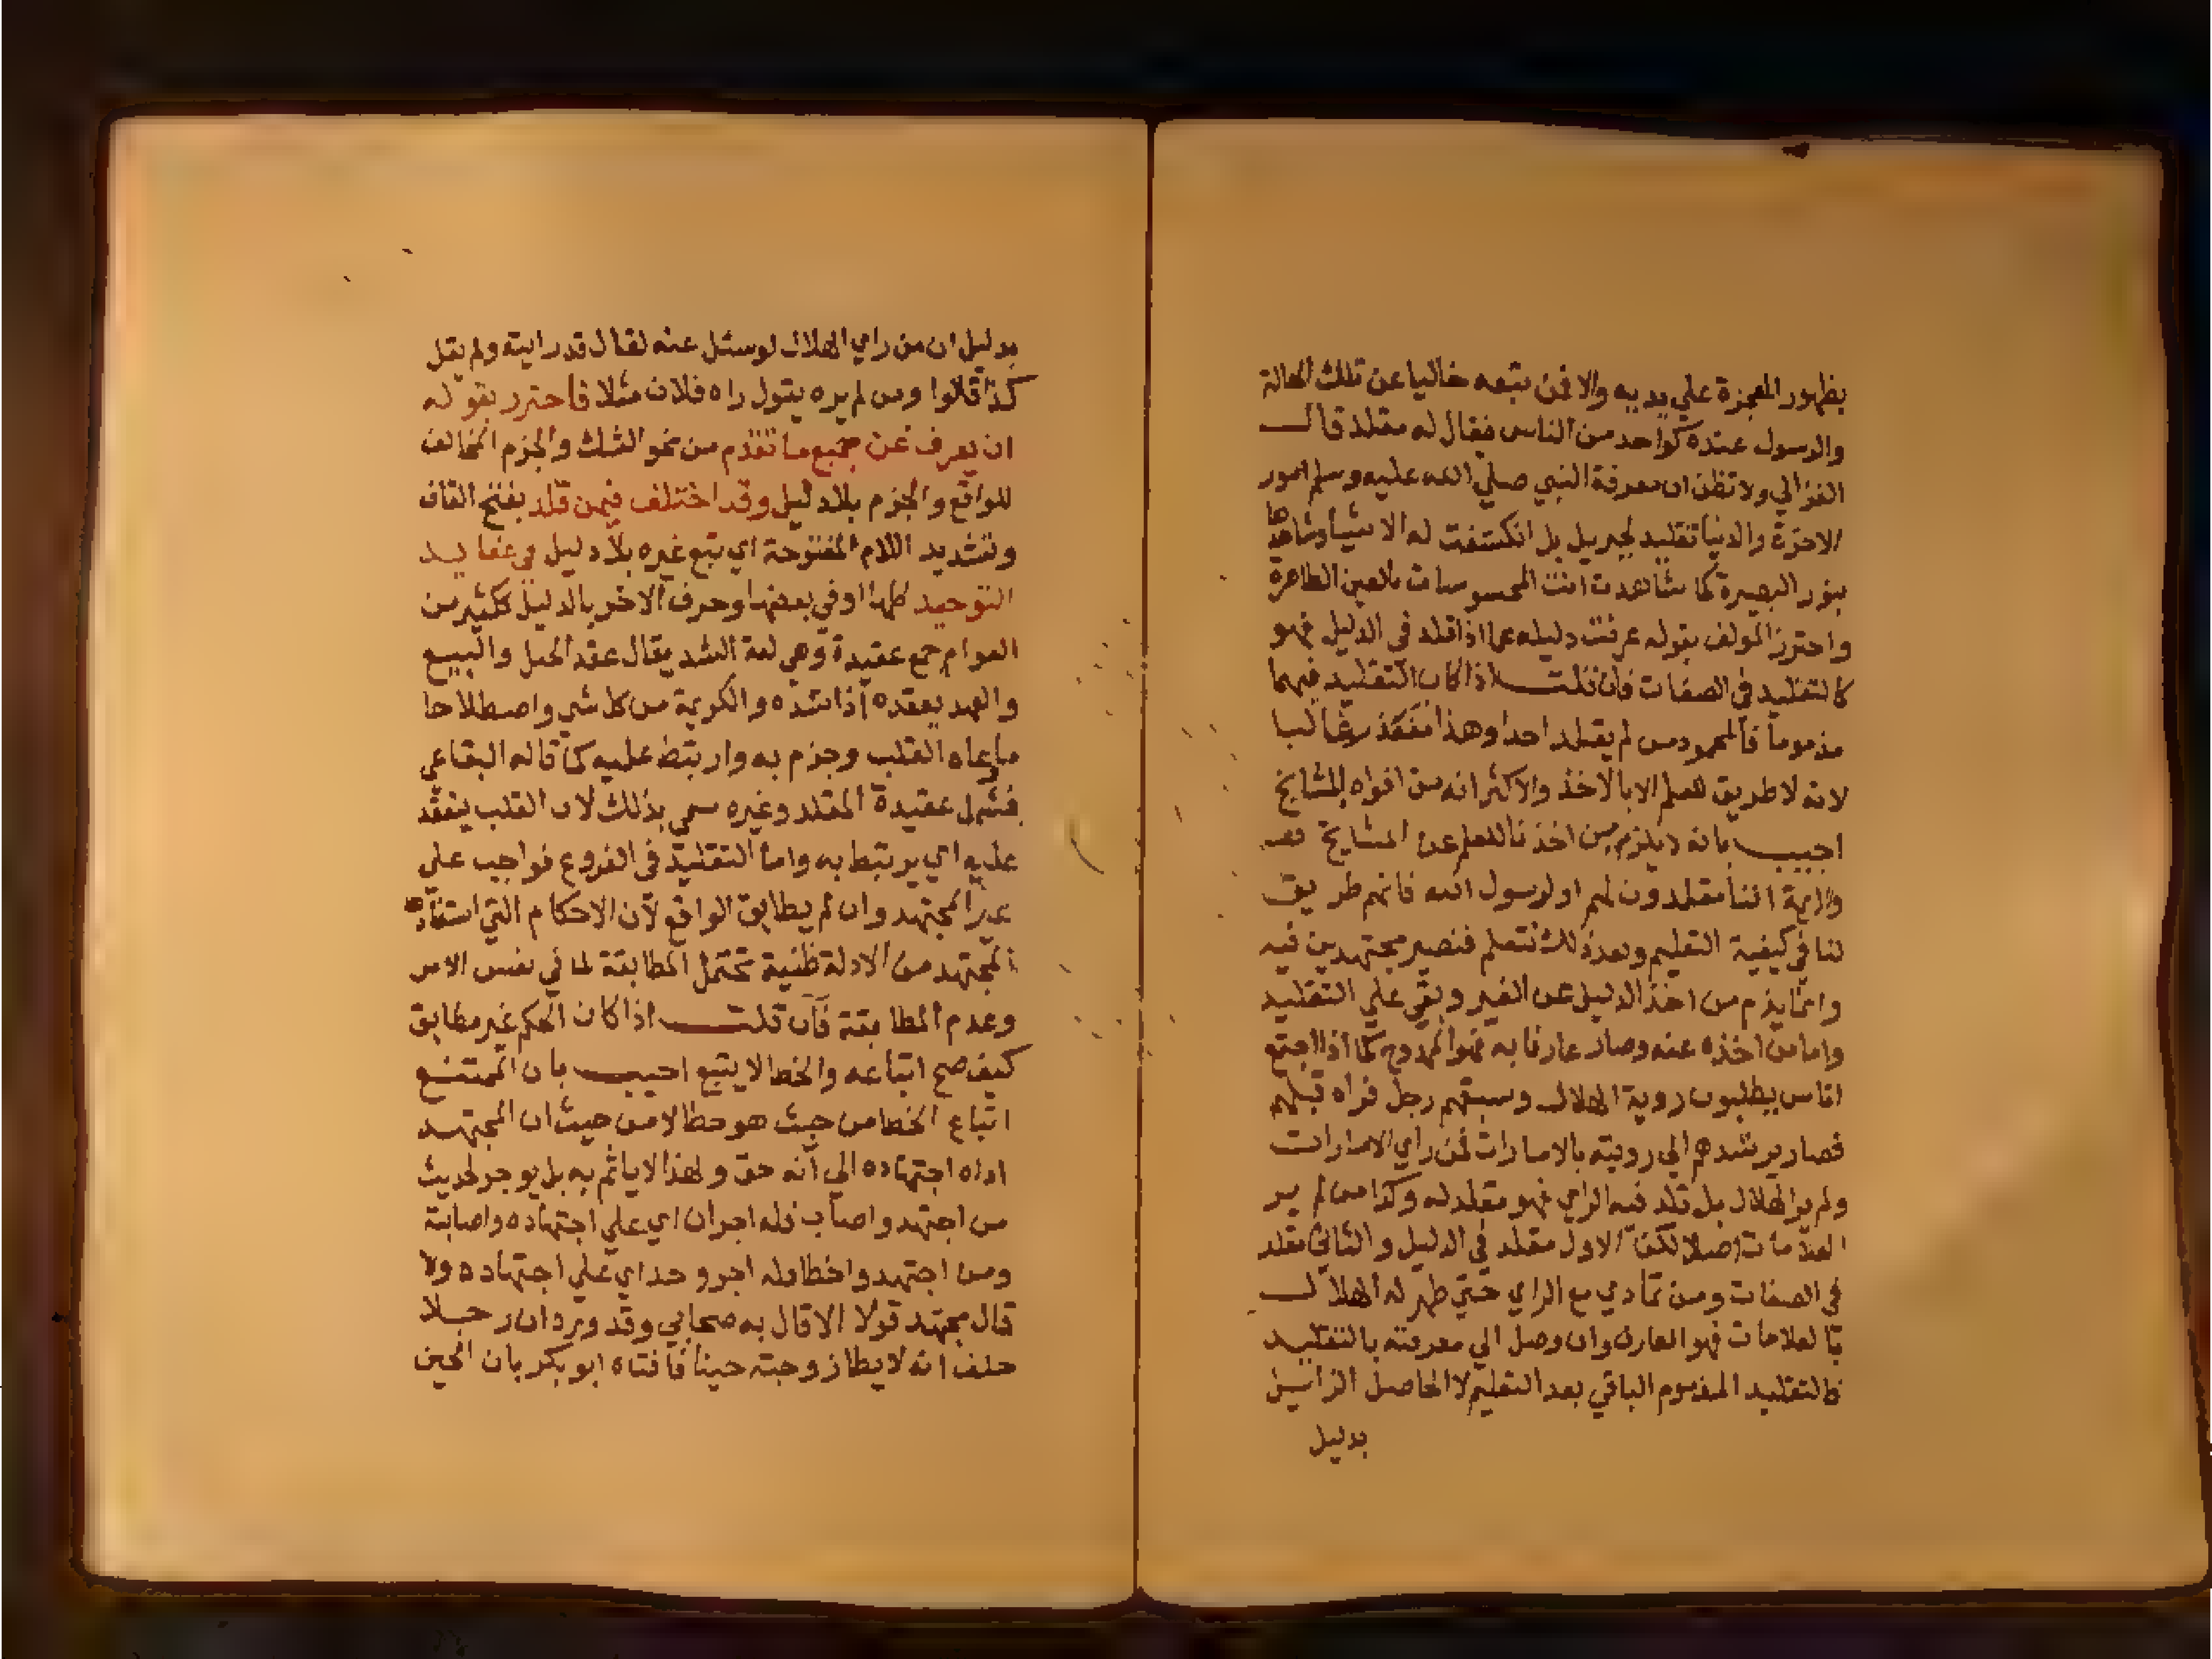 بظهور المعجزة علي يديه والا فمن يتبعه خاليا عن تلك الحالة
والرسول عنده كواحد من الناس فقال له مقلد قال
الغزالي ولا تظن ان معرفة النبي صلي الله عليه وسلم امور
الاخرة والدنيا تقليد لجبريل بل انكشفت له الاشيا وشاهدها
بنور البصيرة كما شاهدت انت المحسوسات بالعين الظاهرة
واحترز المولف بقوله عرفت دليله عما اذا قلد في الدليل فهو
كالتقليد في الصفات فان قلت اذا كان التقليد فيهما
مذموما فالمحمود من لم يقلد احدا وهذا غالبا
لانه لا طريق للعلم الا بالاخذ والاكثر انه من افواه المشايخ
اجيب بانه لا يلزم من اخذنا للعلم عن المشايخ
والايمة اننا مقلدون لهم او لرسول الله فانهم طريق
لنا في كيفية التعليم وبعد ذلك نتعلم فنصير مجتهدين فيه
وانما يذم من اخذ الدليل عن الغير وبقي علي التقليد
واما من اخذه عنه وصار عارفا به فهو الممدوح كما اذا اجتمع
اناس يطلبون روية الهلال وسبقهم رجل فراه قبلهم
فصار يرشدهم الي رويته بالامارات فمن راي الامارات
ولم ير الهلال بل قلد فيه الراي فهو مقلد له وكذا من لم ير
العلامات اصلا لكن الاول مقلد في الدليل والثاني مقلد
في الصفات ومن تمادي مع الراي حتي ظهر له الهلال
بالعلامات فهو العارف وان وصل الي معرفته بالتقليد
فالتقليد المذموم الباقي بعد التعليم لا الحاصل الزايل
بدليل
بدليل ان من راي الهلال لو سئل عنه لقال قد رايته ولم يقل
كذا قالوا ومن لم يره يقول راه فلان مثلا فاحترز بقوله
ان يعرف عن جميع ما تقدم من نحو الشك والجزم المخالف
للواقع والجزم بلا دليل وقد اختلف فيمن قلد بفتح القاف
وتشديد اللام المفتوحة اي يتبع غيره بلا دليل في عقايد
التوحيد كلها او في بعضها وعرف الاخر بالدليل ككثير من
العوام جمع عقيدة وهي لغة الشد يقال عقد الحبل والبيع
والعهد يعقده اذا شده والكريمة من كل شي واصطلاحا
ما وعاه القلب وجزم به وارتبط عليه كما قاله البقاعي
فشمل عقيدة المقلد وغيره سمي بذلك لان القلب ينعقد
عليه اي يرتبط به واما التقليد في الفروع فواجب علي
غير المجتهد وان لم يطابق الواقع لان الاحكام التي استفادها
المجتهد من الادلة ظنية تحتمل المطابقة لما في نفس الامر
وعدم المطابقة فان قلت اذا كان الحكم غير مطابق
كيف صح اتباعه والخطا لا يتبع اجيب بان الممتنع
اتباع الخطا من حيث هو خطا لا من حيث ان المجتهد
اداه اجتهاده الي انه حق ولهذا لا ياثم به بل يوجر لحديث
من اجتهد واصاب فله اجران اي علي اجتهاده واصابته
ومن اجتهد واخطا فله اجر وحد اي علي اجتهاده ولا
قال مجتهد قولا الا قال به صحابي وقد ورد ان رجلا
حلف انه لا يطا زوجته حينا فافتاه ابو بكر بان الحين